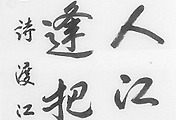 人江
逢把
詩渡江